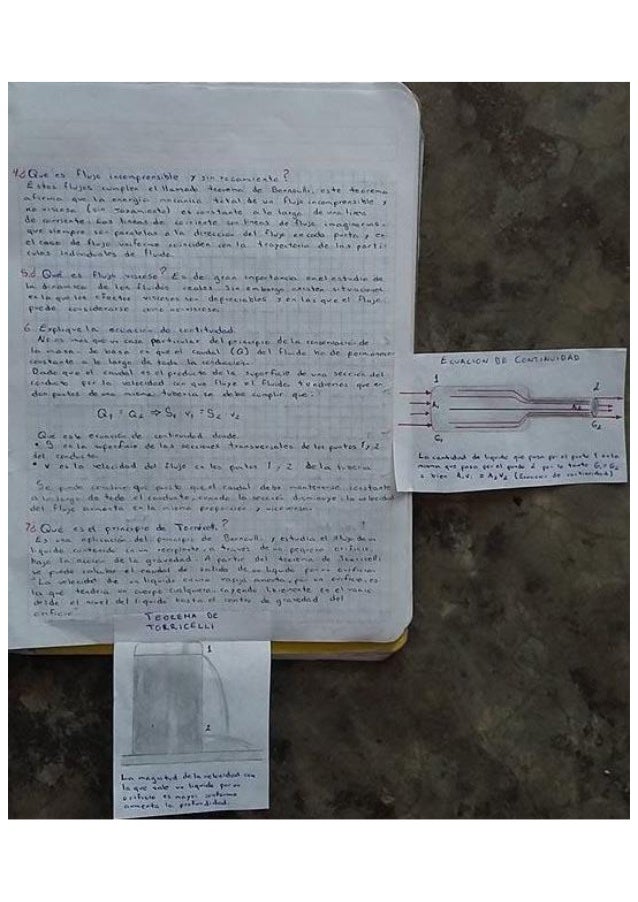 4.¿Que es Flujo incomprensible y sin rozamiento?
Estos flujos cumplen el llamado teorema de Bernoulli, este teorema
afirma que la energía mecánica total de un flujo incompresible y
no viscoso (sin rozamiento) es constante a lo largo de una línea
de corriente. Las líneas de corriente son líneas de flujo imaginarias
que siempre son paralelas a la dirección del flujo en cada punto, y en
el caso de flujo uniforme coinciden con la trayectoria de las partí
culas individuales de fluido.
5.¿ Qué es flujo viscoso? Es de gran importancia en el estudio de
la dinámica de los fluidos reales. Sin embargo existen situaciones
en la que los efectos viscosos son depreciables y en las que el flujo
puede considerarse como no viscoso.
6. Explique la ecuación de contituidad.
No es mas que un caso particular del principio de la conservación de
la masa. Se basa en que el caudal (Q) del fluido ha de permanecer
constante a lo largo de toda la conducción.
Dado que el caudal es el producto de la superficie de una sección del
conducto por la velocidad con que fluye el fluido, tendremos que en
dos puntos de una misma tubería se debe cumplir que:
Q₁ = Q₂ ⇒ S₁ v₁ = S₂ v₂
Que es la ecuación de continuidad donde.
• S es la superficie de las secciones transversales de los puntos 1 y 2
del conducto.
• v es la velocidad del flujo en los puntos 1 y 2 de la tubería
Se puede concluir que puesto que el caudal debe mantenerse constante
a lo largo de todo el conducto, cuando la sección disminuye, la velocidad
del flujo aumenta en la misma proporción y viceversa.
7¿ Qué es el principio de Torricelli?
Es una aplicación del principio de Bernoulli y estudia el flujo de un
líquido contenido en un recipiente, a través de un pequeño orificio,
bajo la acción de la gravedad. A partir del teorema de Torricelli
se puede calcular el caudal de salida de un líquido por un orificio.
"La velocidad de un líquido en una vasija abierta, por un orificio, es
la que tendría un cuerpo cualquiera, cayendo libremente en el vacío
desde el nivel del líquido hasta el centro de gravedad del
orificio"
ECUACION DE CONTINUIDAD
1
2
A₁
A₂
G₁
G₂
La cantidad de liquido que pasa por el punto 1 es la
misma que pasa por el punto 2 por lo tanto G₁=G₂
o bien A₁v₁ = A₂V₂ (Ecuación de continuidad)
TEOREMA DE
TORRICELLI
1
2
La magnitud de la velocidad con
la que sale un liquido por un
orificio es mayor conforme
aumenta la profundidad.